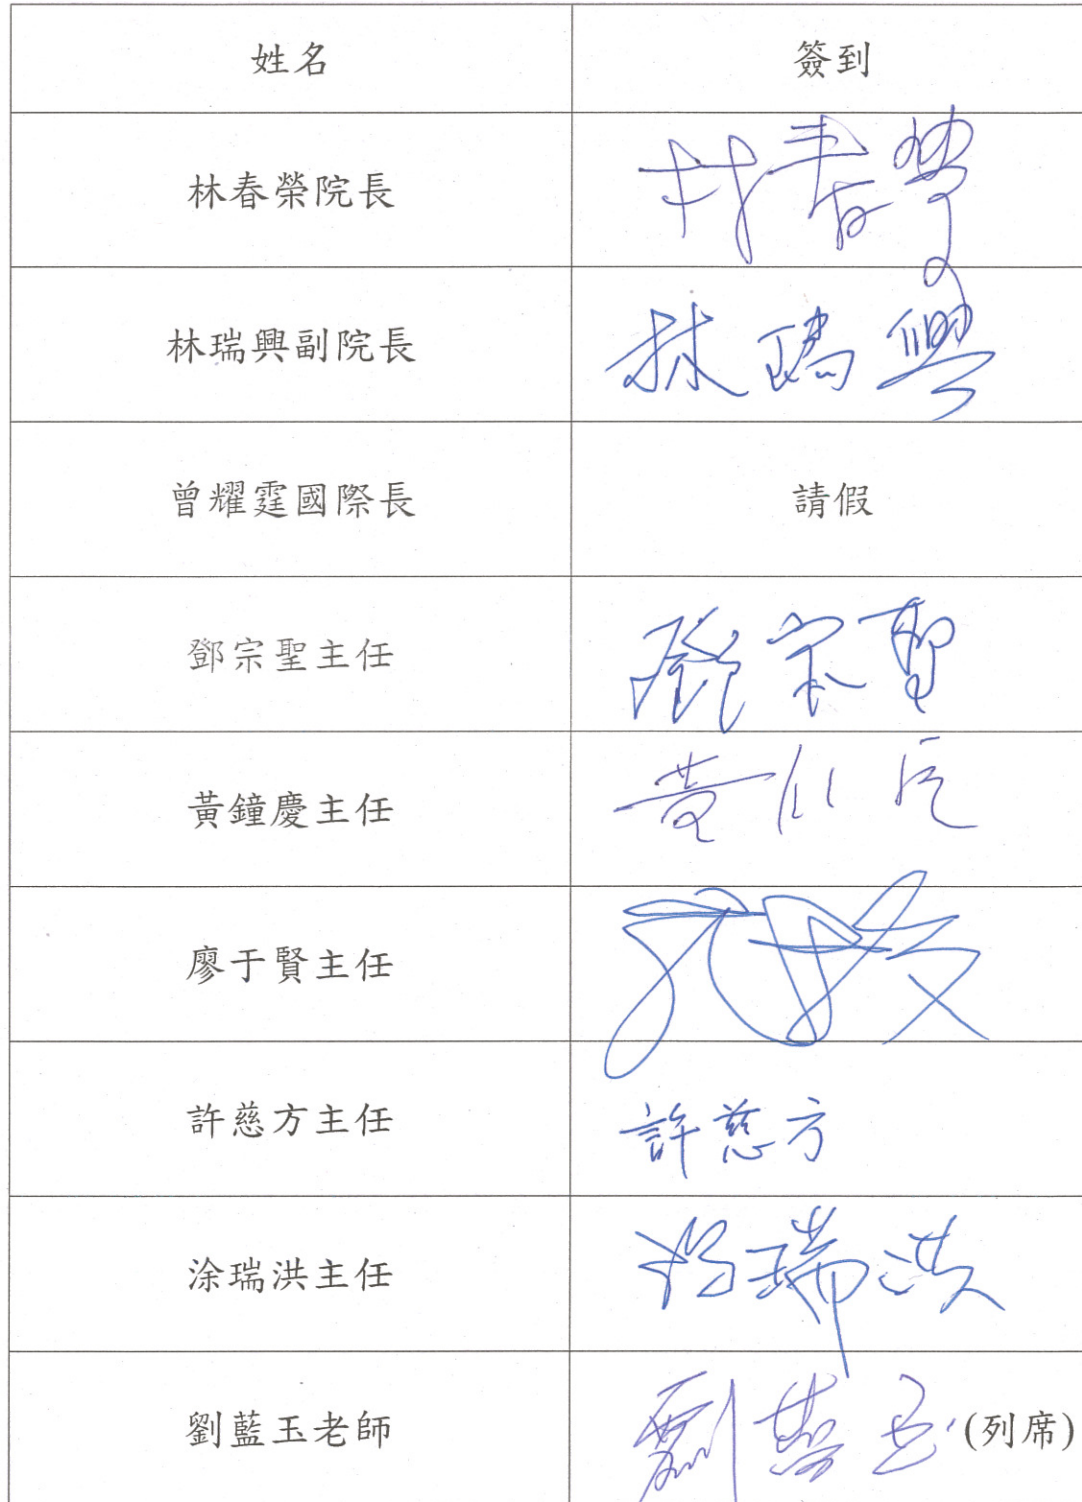 姓名 簽到
林春榮院長 林春榮
林瑞興副院長 林瑞興
曾耀霆國際長 請假
鄧宗聖主任 鄧宗聖
黃鐘慶主任
廖于賢主任
許慈方主任 許慈方
涂瑞洪主任 涂瑞洪
劉藍玉老師 劉藍玉 (列席)